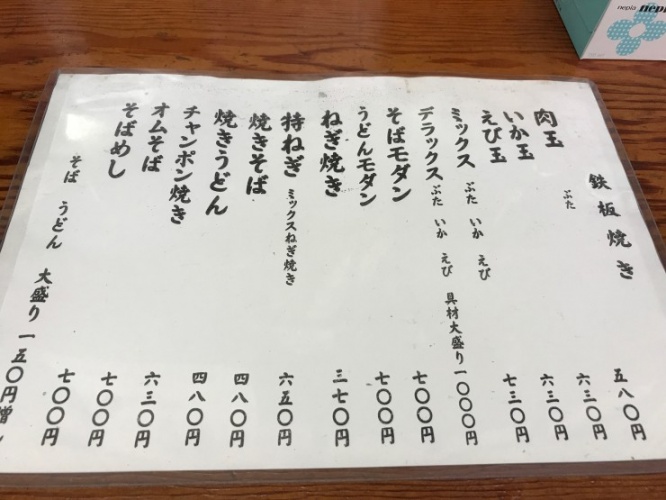 nepia nepia
鉄板焼き
肉玉 ぶた 五八〇円
いか玉 六三〇円
えび玉 六三〇円
ミックス ぶた いか えび 七三〇円
デラックス ぶた いか えび 具材大盛り一〇〇〇円
そばモダン 七〇〇円
うどんモダン 七〇〇円
ねぎ焼き 三七〇円
特ねぎ ミックスねぎ焼き 六五〇円
焼きそば 四八〇円
焼きうどん 四八〇円
チャンポン焼き 六三〇円
オムそば 七〇〇円
そばめし 七〇〇円
そば うどん 大盛り一五〇円増し